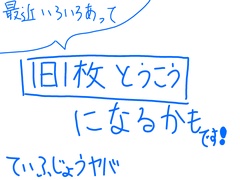 最近いろいろあって
1日1枚とうこう
になるかもです!
ていふじょうヤバ